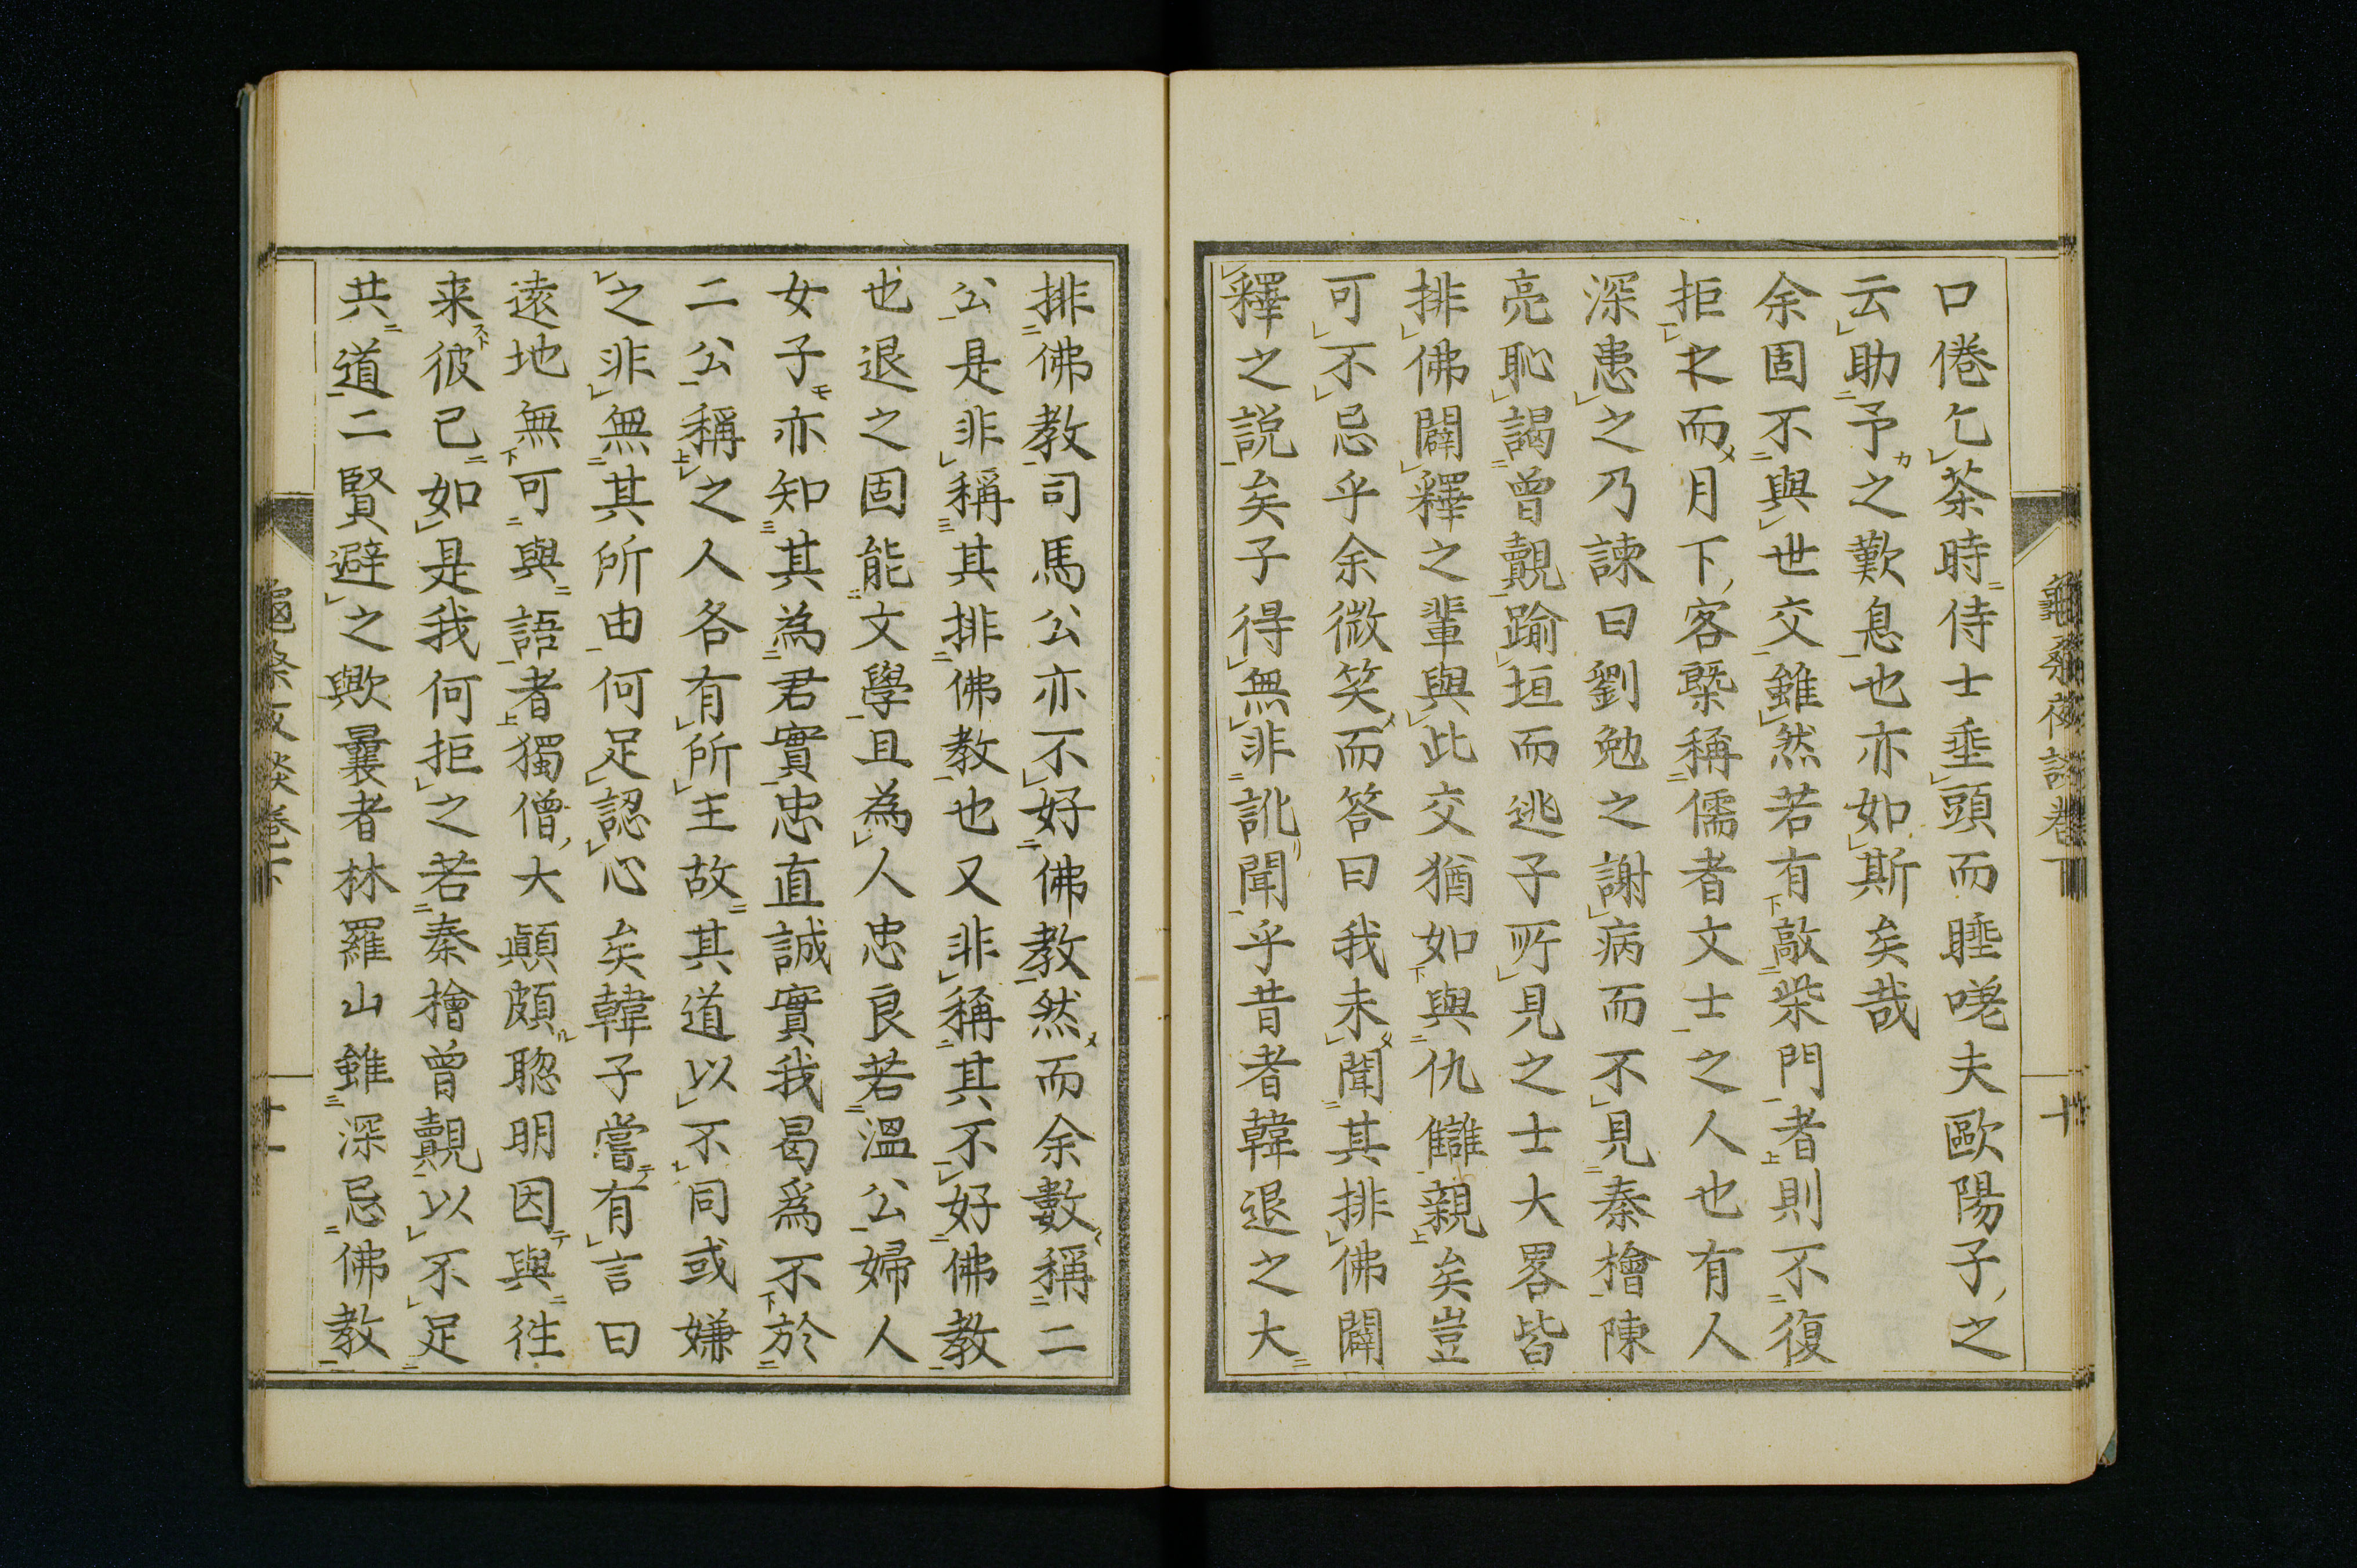 口倦乞茶時侍士垂頭而睡嘆夫歐陽子之
云助予之歎息也亦如斯矣哉
余固不與世交雖然若有敲柴門者則不復
拒之而月下客槩稱儒者文士之人也有人
深患之乃諫曰劉勉之謝病而不見秦檜陳
亮恥謁曾覿踰垣而逃子所見之士大畧皆
排佛闢釋之輩與此交猶如與仇讎親矣豈
可不忌乎余微笑而答曰我未聞其排佛闢
釋之説矣子得無非訛聞乎昔者韓退之大
排佛教司馬公亦不好佛教然而余數稱二
公是非稱其排佛教也又非稱其不好佛教
也退之固能文學且為人忠良若溫公婦人
女子亦知其為君實忠直誠實我曷為不於
二公稱之人各有所主故其道以不同或嫌
之非無其所由何足認心矣韓子嘗有言曰
遠地無可與語者獨僧大顛頗聰明因與徃
来彼已如是我何拒之若秦檜曾覿以不足
共道二賢避之歟曩者林羅山雖深忌佛教
龜祭夜談卷下
十
十一